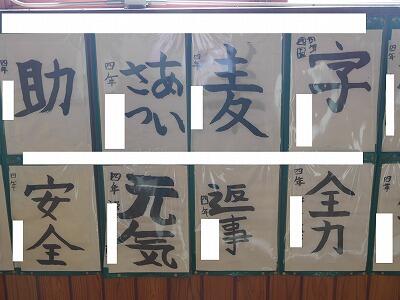 四年
助
四年
あい
さつ
四年
麦
四年
字
四年
安全
四年
元気
四年
返事
四年
全力